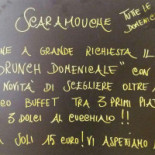 SCARAMOUCHE
TUTTE LE
DOMENIC
NE A GRANDE RICHIESTA IL
BRUNCH DOMENICALE" CON
NOVITÀ DI SCEGLIERE OLTRE A
RO BUFFET TRA 3 PRIMI PIA
3 DOLCI AL CUCCHIAIO!!
A SOLI 15 EURO! VI ASPETTIAMO